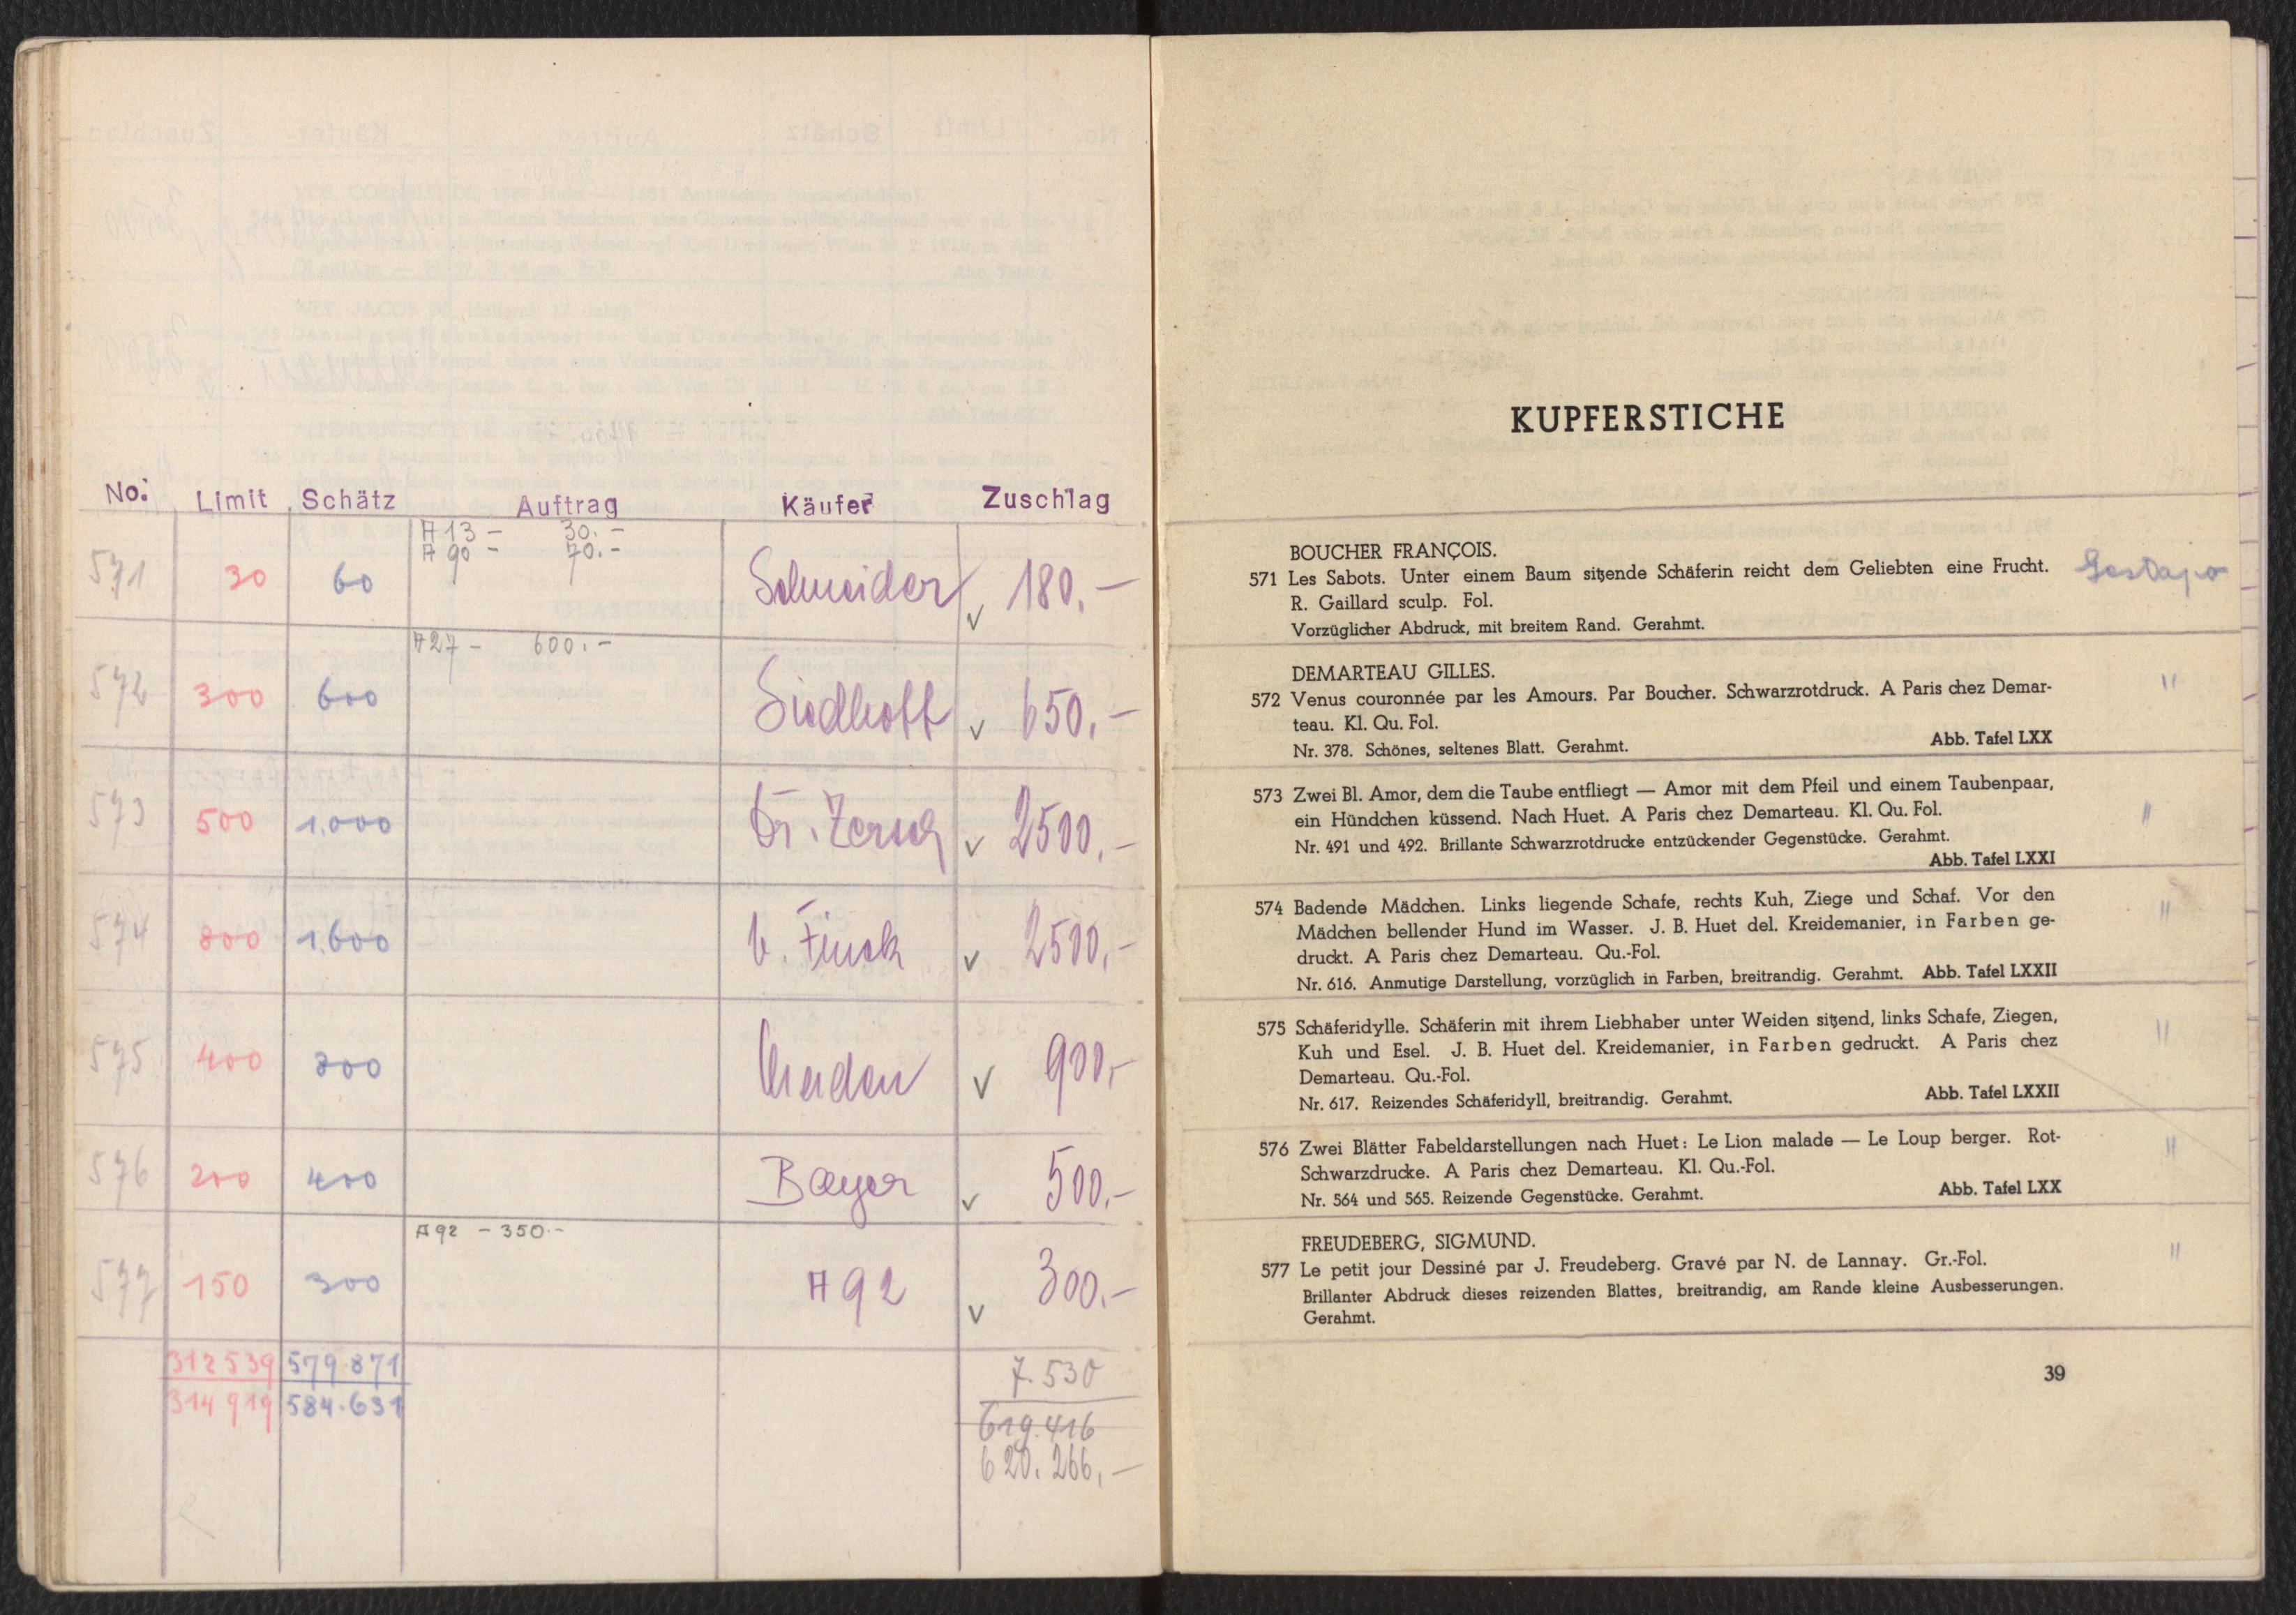 No. Limit Schätz Auftrag Käufer Zuschlag
A13 - 30.-
A90 - 70.-
571 30 60 Schneider v 180.-
A27 - 600.-
572 300 600 Siedhoff v 650.-
573 500 1.000 Dr. v 2500.-
574 800 1.600 v. Finck v 2500.-
575 400 800 v 900.-
576 200 400 Bayer v 500.-
A92 - 350.-
577 150 300 A92 v 300.-
312539 579.871 7.530
314919 584.631 619.416
620.266.-
KUPFERSTICHE
BOUCHER FRANÇOIS.
571 Les Sabots. Unter einem Baum sitzende Schäferin reicht dem Geliebten eine Frucht. Gestapo
R. Gaillard sculp. Fol.
Vorzüglicher Abdruck, mit breitem Rand. Gerahmt.
DEMARTEAU GILLES.
572 Venus couronnée par les Amours. Par Boucher. Schwarzrotdruck. A Paris chez Demar- "
teau. Kl. Qu. Fol.
Nr. 378. Schönes, seltenes Blatt. Gerahmt. Abb. Tafel LXX
573 Zwei Bl. Amor, dem die Taube entfliegt — Amor mit dem Pfeil und einem Taubenpaar,
ein Hündchen küssend. Nach Huet. A Paris chez Demarteau. Kl. Qu. Fol. "
Nr. 491 und 492. Brillante Schwarzrotdrucke entzückender Gegenstücke. Gerahmt.
Abb. Tafel LXXI
574 Badende Mädchen. Links liegende Schafe, rechts Kuh, Ziege und Schaf. Vor den "
Mädchen bellender Hund im Wasser. J. B. Huet del. Kreidemanier, in Farben ge-
druckt. A Paris chez Demarteau. Qu.-Fol.
Nr. 616. Anmutige Darstellung, vorzüglich in Farben, breitrandig. Gerahmt. Abb. Tafel LXXII
575 Schäferidylle. Schäferin mit ihrem Liebhaber unter Weiden sitzend, links Schafe, Ziegen, "
Kuh und Esel. J. B. Huet del. Kreidemanier, in Farben gedruckt. A Paris chez
Demarteau. Qu.-Fol.
Nr. 617. Reizendes Schäferidyll, breitrandig. Gerahmt. Abb. Tafel LXXII
576 Zwei Blätter Fabeldarstellungen nach Huet: Le Lion malade — Le Loup berger. Rot- "
Schwarzdrucke. A Paris chez Demarteau. Kl. Qu.-Fol.
Nr. 564 und 565. Reizende Gegenstücke. Gerahmt. Abb. Tafel LXX
FREUDEBERG, SIGMUND.
577 Le petit jour Dessiné par J. Freudeberg. Gravé par N. de Lannay. Gr.-Fol. "
Brillanter Abdruck dieses reizenden Blattes, breitrandig, am Rande kleine Ausbesserungen.
Gerahmt.
39